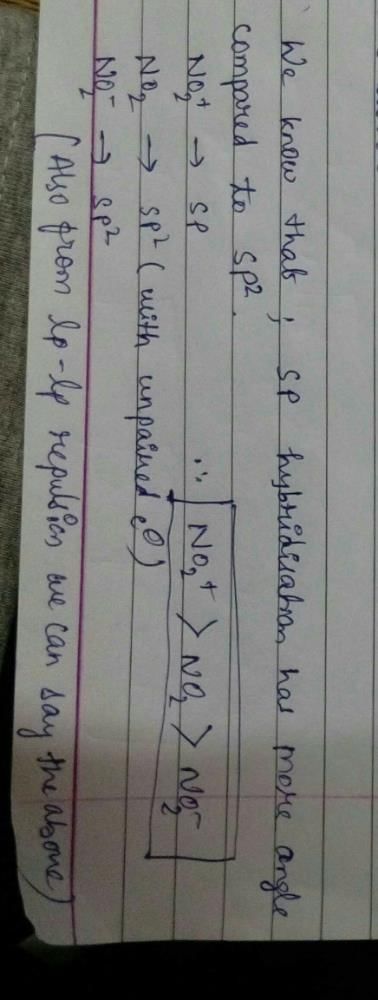 We know that ; sp hybridisation has more angle
compared to sp².
NO₂⁺ → sp
NO₂ → sp² (with unpaired e⊖)
NO₂⁻ → sp²
∴ NO₂⁺ > NO₂ > NO₂⁻
(Also from lp-lp repulsion we can say the above)